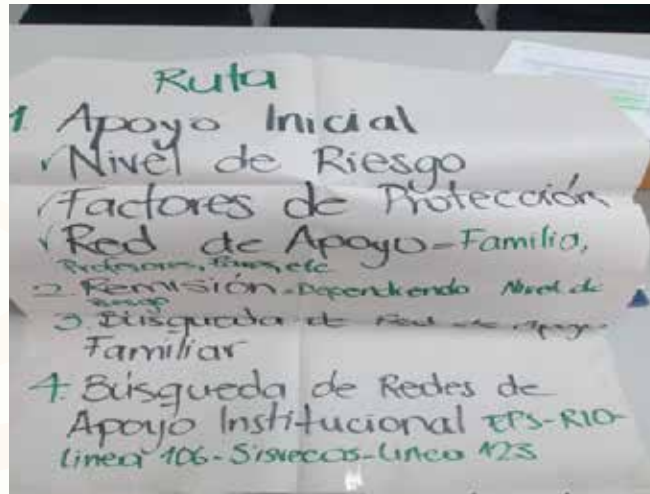 Ruta
1. Apoyo Inicial
✓ Nivel de Riesgo
✓ Factores de Protección
✓ Red de Apoyo - Familia,
Profesores, etc
2. Remisión - Dependiendo Nivel de
Riesgo
3. Búsqueda de Red de Apoyo
Familiar
4. Búsqueda de Redes de
Apoyo Institucional EPS-RIO-
Linea 106 - - Linea 123